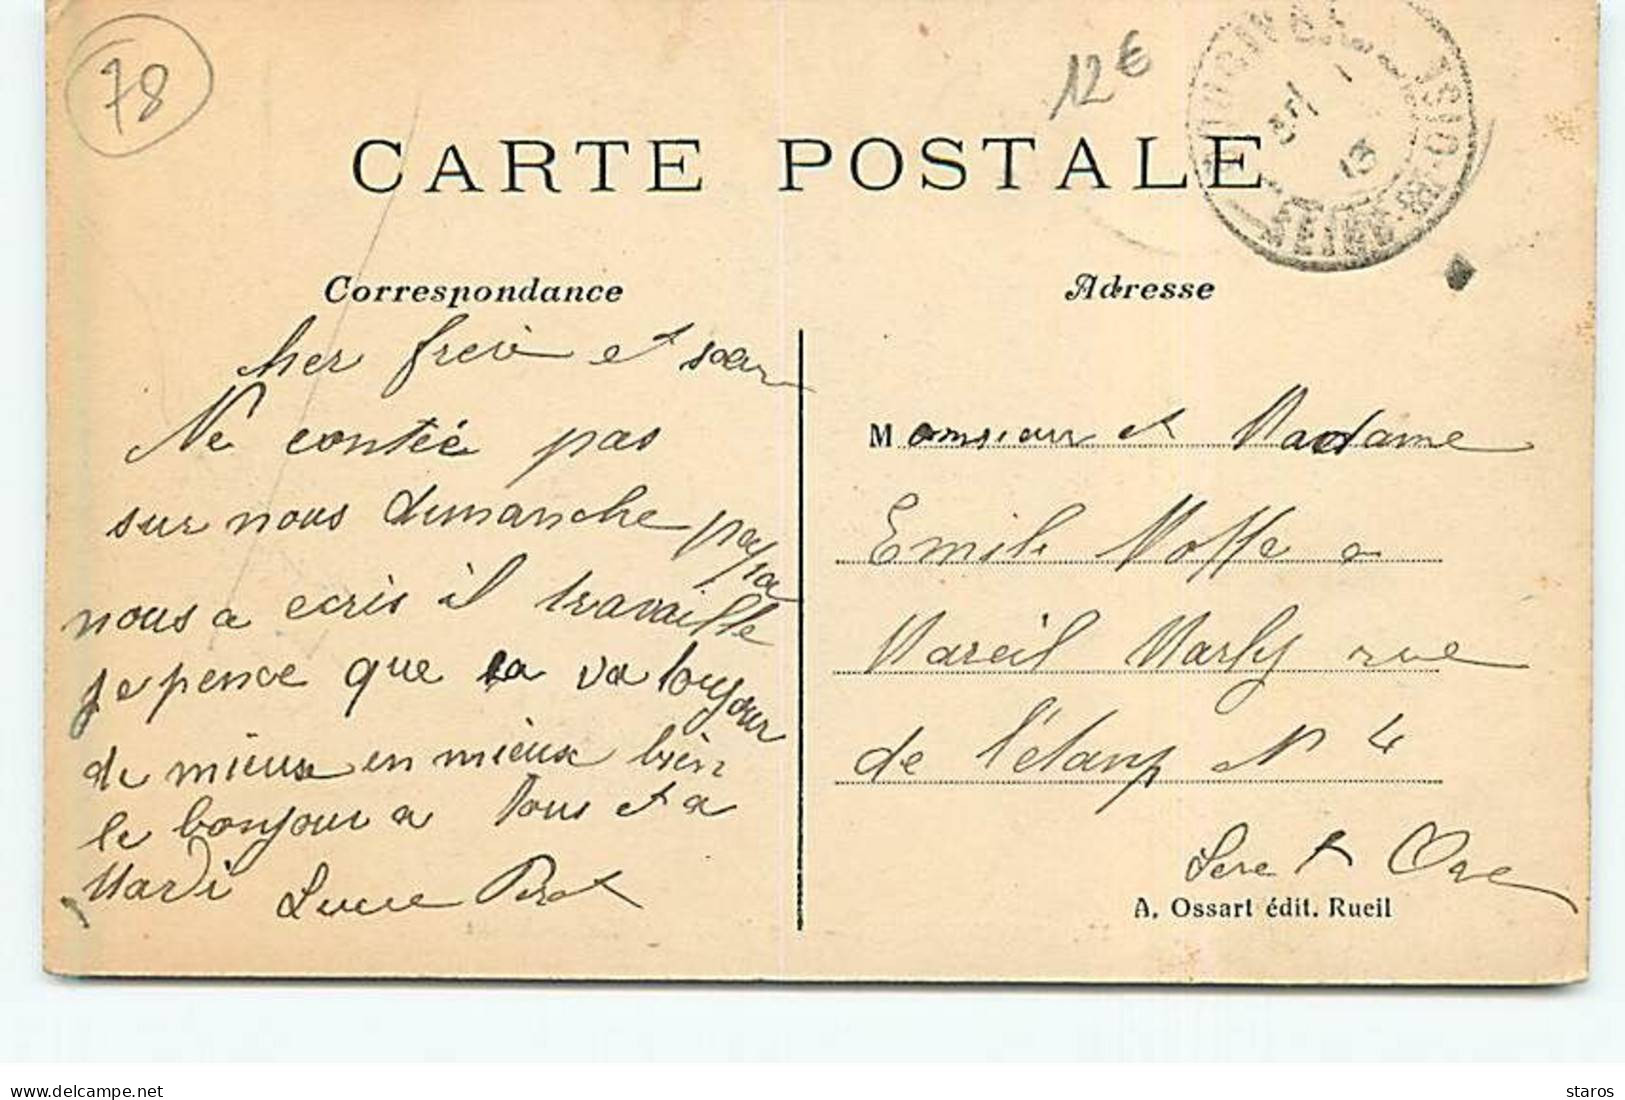 78
12€
CARTE POSTALE
SEINE-&-OISE
13
Correspondance
Adresse
cher frere et soeur
Ne contée pas
sur nous dimanche papa
nous a ecris il travaille
je pence que sa va toujour
de mieux en mieux bien
le bonjour a tous et a
Mardi
Monsieur et Madame
Emile a
Mareil Marly rue
de l'étang N 4
Seine et Oise
A. Ossart édit. Rueil
delcampe.net
staros